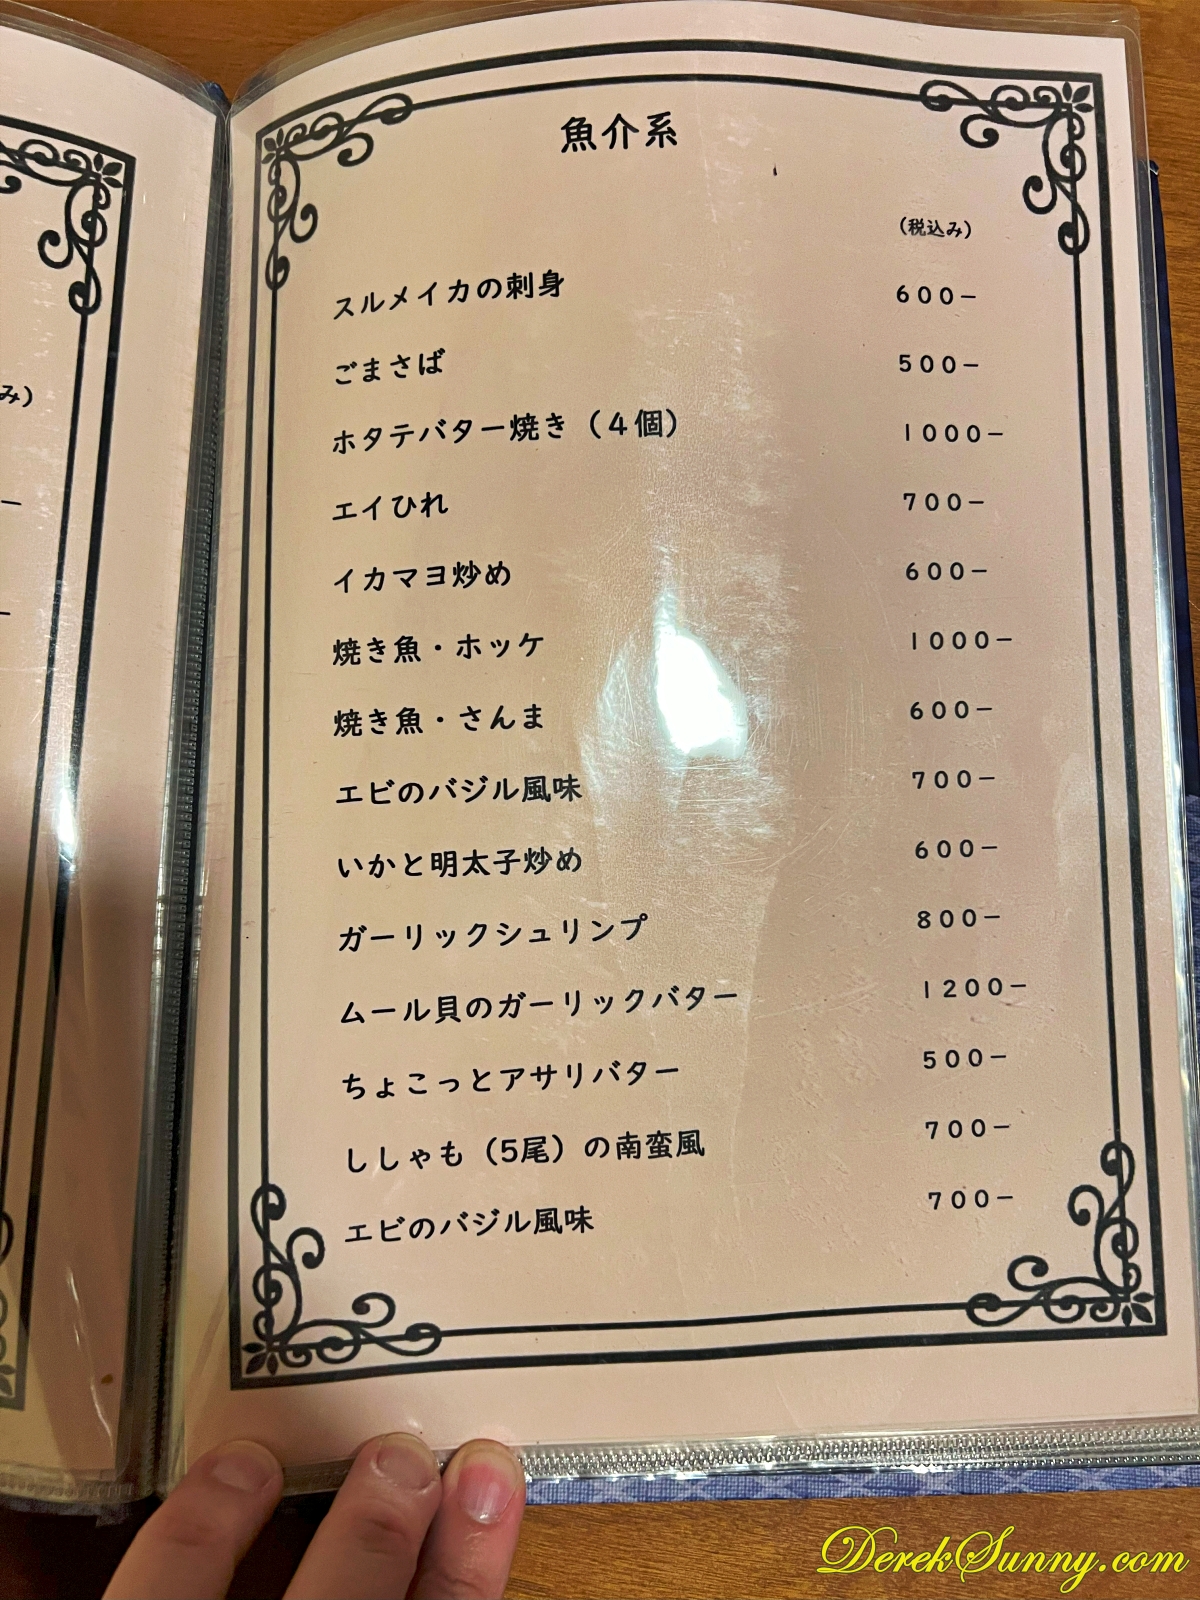 魚介系
(税込み)
スルメイカの刺身 600−
ごまさば 500−
ホタテバター焼き（4個） 1000−
エイひれ 700−
イカマヨ炒め 600−
焼き魚・ホッケ 1000−
焼き魚・さんま 600−
エビのバジル風味 700−
いかと明太子炒め 600−
ガーリックシュリンプ 800−
ムール貝のガーリックバター 1200−
ちょこっとアサリバター 500−
ししゃも（5尾）の南蛮風 700−
エビのバジル風味 700−
み)
DerekSunny.com